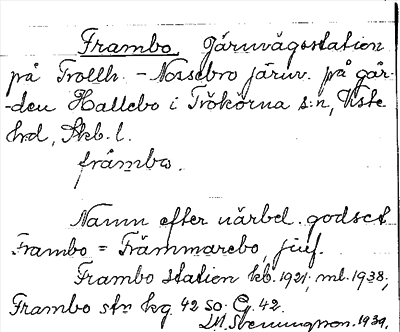 Frambo, Järnvägsstation
på Trollh. - Nossebro järnv. på går-
den Hallebo i Trökörna s:n, Viste
hrd, Skb. l.
fråmbo.
Namn efter närbel. godset
Frambo = Främmarebo, jinf.
Frambo station kb. 1921; ml. 1938,
Frambo stn kg. 42 SO. G. 42.
1939.